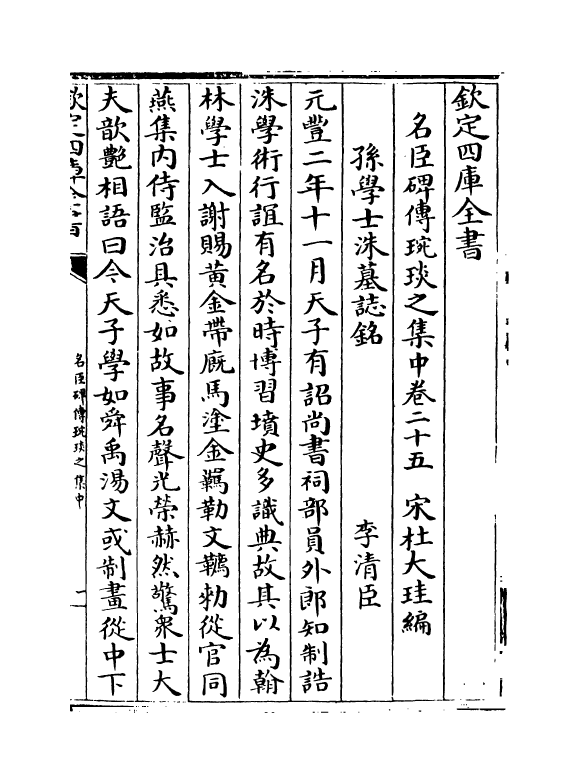 欽定四庫全書
名臣碑傳琬琰之集中卷二十五　宋杜大珪編
孫學士洙墓誌銘　李清臣
元豐二年十一月天子有詔尚書祠部員外郎知制誥
洙學術行誼有名於時博習墳史多識典故其以為翰
林學士入謝賜黃金帶廐馬塗金羈勒文韉勑從官同
燕集內侍監治具悉如故事名聲光榮赫然驚衆士大
夫歆艷相語曰今天子學如舜禹湯文或制畫從中下
欽定四庫全書
名臣碑傳琬琰之集中
一